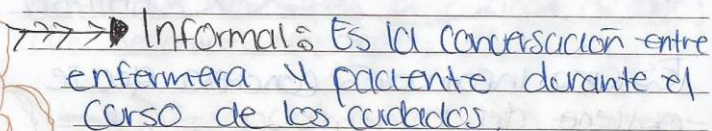 Informal: Es la conversación entre
enfermera y paciente durante el
curso de los cuidados